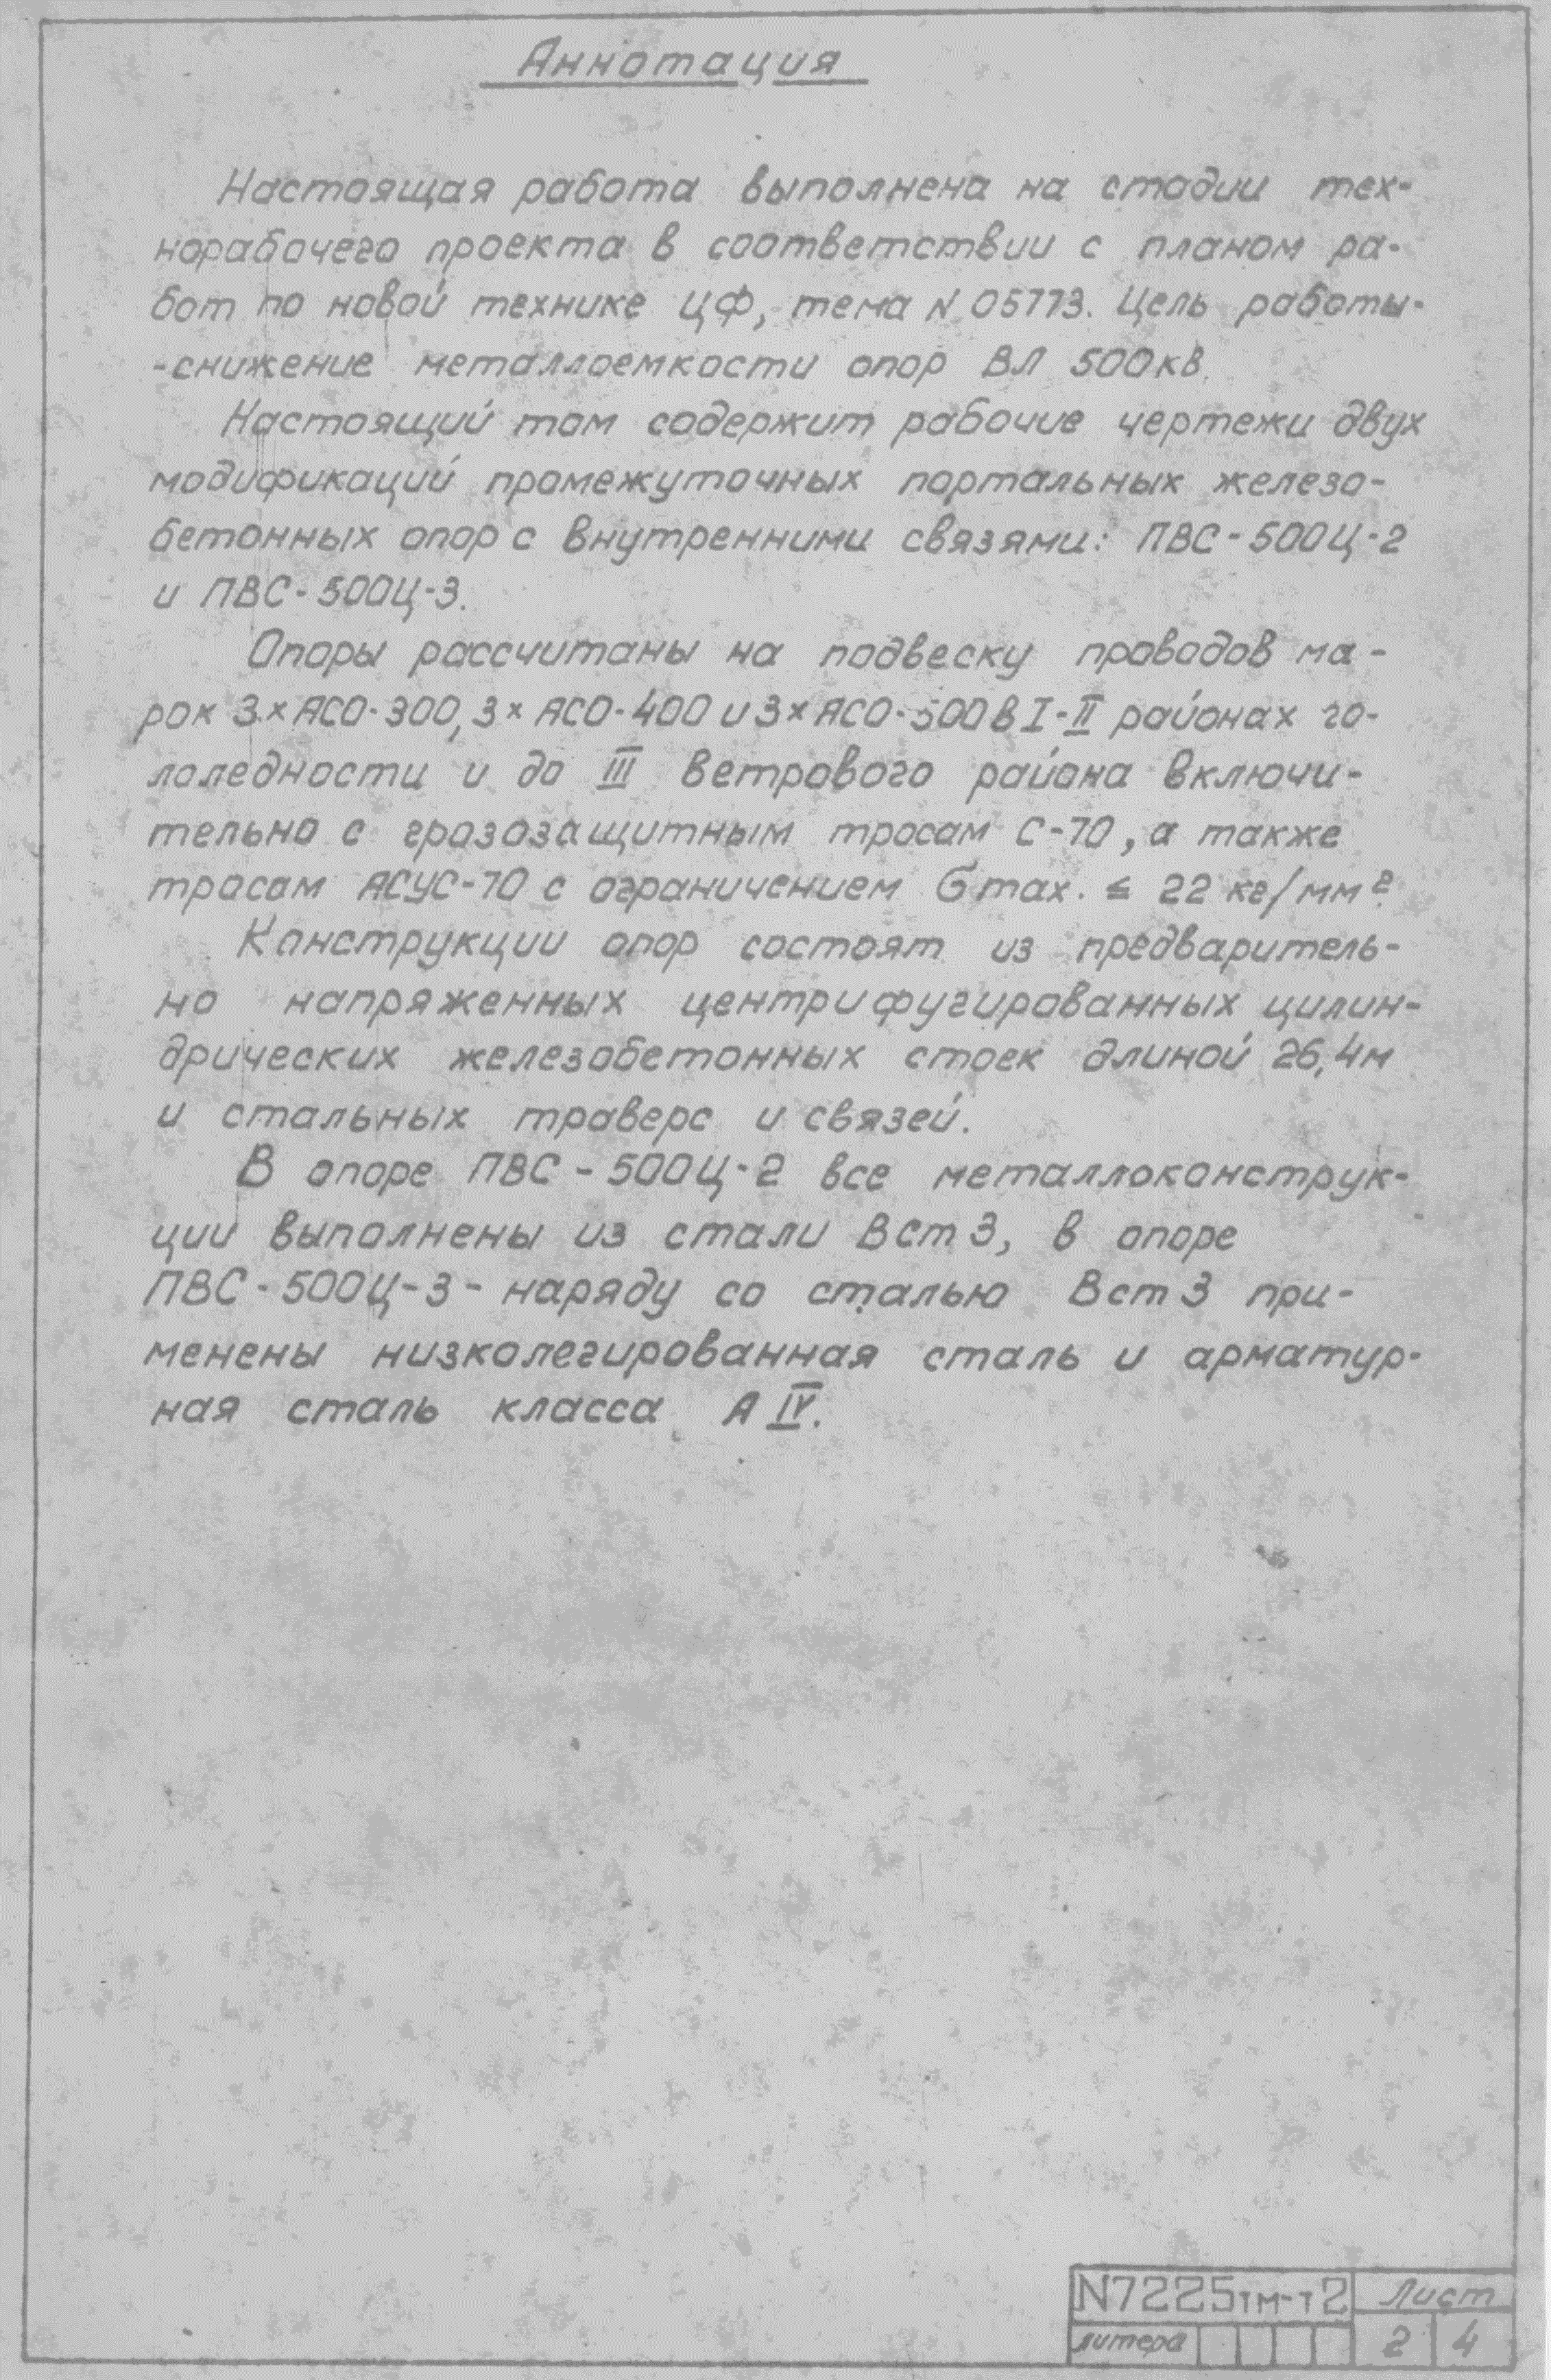 Аннотация
Настоящая работа выполнена на стадии тех-
норабочего проекта в соответствии с планом ра-
бот по новой технике ЦФ, тема N 05773. Цель работы-
-снижение металлоемкости опор ВЛ 500кв.
Настоящий том содержит рабочие чертежи двух
модификаций промежуточных портальных железо-
бетонных опор с внутренними связями: ПВС-500Ц-2
и ПВС-500Ц-3.
Опоры рассчитаны на подвеску проводов ма-
рок 3×АСО-300, 3×АСО-400 и 3×АСО-500 в I-II районах го-
лоледности и до III ветрового района включи-
тельно с грозозащитным тросом С-70, а также
тросом АСУС-70 с ограничением Gmax. ≤ 22 кг/мм².
Конструкции опор состоят из предваритель-
но напряженных центрифугированных цилин-
дрических железобетонных стоек длиной 26,4м
и стальных траверс и связей.
В опоре ПВС-500Ц-2 все металлоконструк-
ции выполнены из стали ВСт3, в опоре
ПВС-500Ц-3- наряду со сталью Вст3 при-
менены низколегированная сталь и арматур-
ная сталь класса А IV.
N7225тм-т2 Лист
литера 2 4